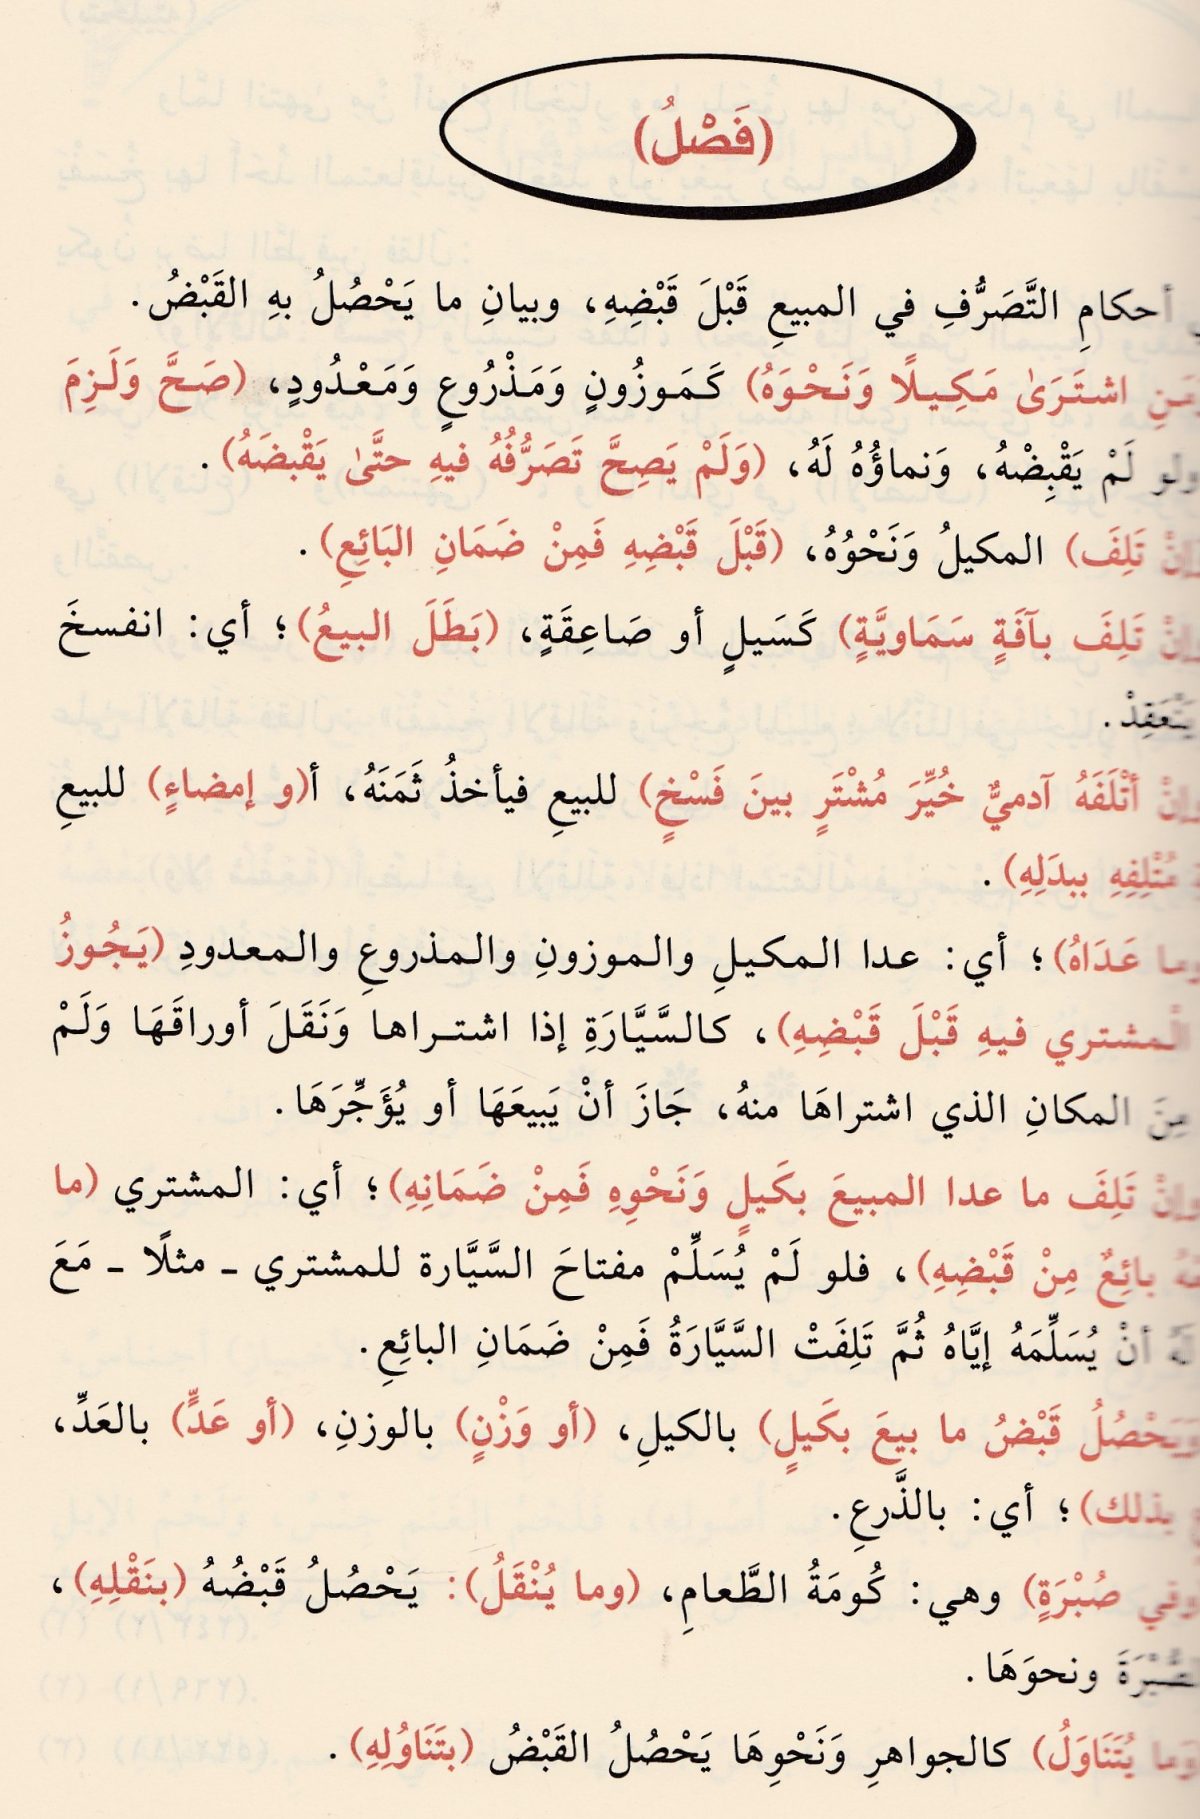 (فَصْلُ)
أحكامِ التَّصَرُّفِ في المبيعِ قَبْلَ قَبْضِهِ، وبيانِ ما يَحْصُلُ بهِ القَبْضُ.
اشتَرَىٰ مَكِيلًا وَنَحْوَهُ) كَمَوزُونٍ وَمَذْرُوعٍ وَمَعْدُودٍ، (صَحَّ وَلَزِمَ
ولو لَمْ يَقْبِضْهُ، وَنماؤُهُ لَهُ، (وَلَمْ يَصِحَّ تَصَرُّفُهُ فيهِ حتَّىٰ يَقْبضَهُ).
تَلِفَ) المكيلُ وَنَحْوُهُ، (قَبْلَ قَبْضِهِ فَمِنْ ضَمَانِ البَائِعِ).
تَلِفَ بآفَةٍ سَمَاويَّةٍ) كَسَيلٍ أو صَاعِقَةٍ، (بَطَلَ البيعُ)؛ أي: انفسخَ
يَنْعَقِدْ.
أتْلَفَهُ آدميٌّ خُيِّرَ مُشْتَرٍ بينَ فَسْخٍ) للبيعِ فيأخذُ ثَمَنَهُ، أ(و إمضاءٍ) للبيعِ
مُتْلِفِهِ ببدَلِهِ).
عَدَاهُ)؛ أي: عدا المكيلِ والموزونِ والمذروعِ والمعدودِ (يَجُوزُ
المشتري فيهِ قَبْلَ قَبْضِهِ)، كالسَّيَّارَةِ إذا اشتراها وَنَقَلَ أوراقَهَا وَلَمْ
مِنَ المكانِ الذي اشتراهَا منهُ، جَازَ أنْ يَبيعَهَا أو يُؤَجِّرَهَا.
تَلِفَ ما عدا المبيعَ بكَيلٍ وَنَحْوِهِ فَمِنْ ضَمَانِهِ)؛ أي: المشتري (ما
بائِعٌ مِنْ قَبْضِهِ)، فلو لَمْ يُسَلِّمْ مفتاحَ السَّيَّارة للمشتري ـ مثلًا ـ مَعَ
أنْ يُسَلِّمَهُ إيَّاهُ ثُمَّ تَلِفَتْ السَّيَّارَةُ فَمِنْ ضَمَانِ البائعِ.
وَيَحْصُلُ قَبْضُ ما بيعَ بكَيلٍ) بالكيلِ، (أو وَزْنٍ) بالوزنِ، (أو عَدٍّ) بالعَدِّ،
بذلك)؛ أي: بالذَّرعِ.
وفي صُبْرَةٍ) وهي: كُومَةُ الطَّعامِ، (وما يُنْقَلُ): يَحْصُلُ قَبْضُهُ (بنَقْلِهِ)،
الصُّبْرَةَ ونحوَهَا.
وما يُتَنَاوَلُ) كالجواهرِ وَنَحْوِهَا يَحْصُلُ القَبْضُ (بتَنَاوُلِهِ).